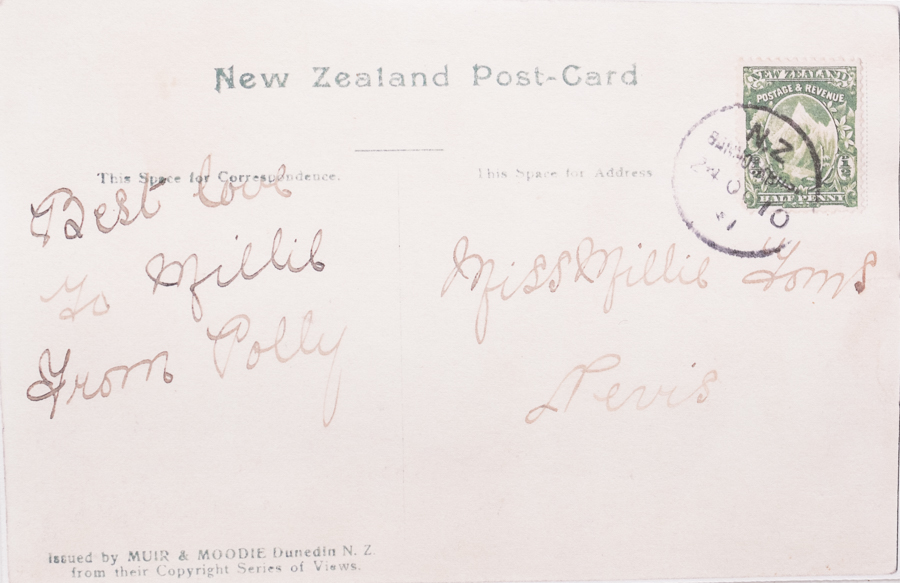 New Zealand Post-Card
NEW ZEALAND
POSTAGE & REVENUE
1/2
HALF PENNY
N.Z
24 OC 10
This Space for Correspondence.
This Space for Address
Best love
To Millie
From Polly
Miss Millie Toms
Nevis
Issued by MUIR & MOODIE Dunedin N. Z.
from their Copyright Series of Views.